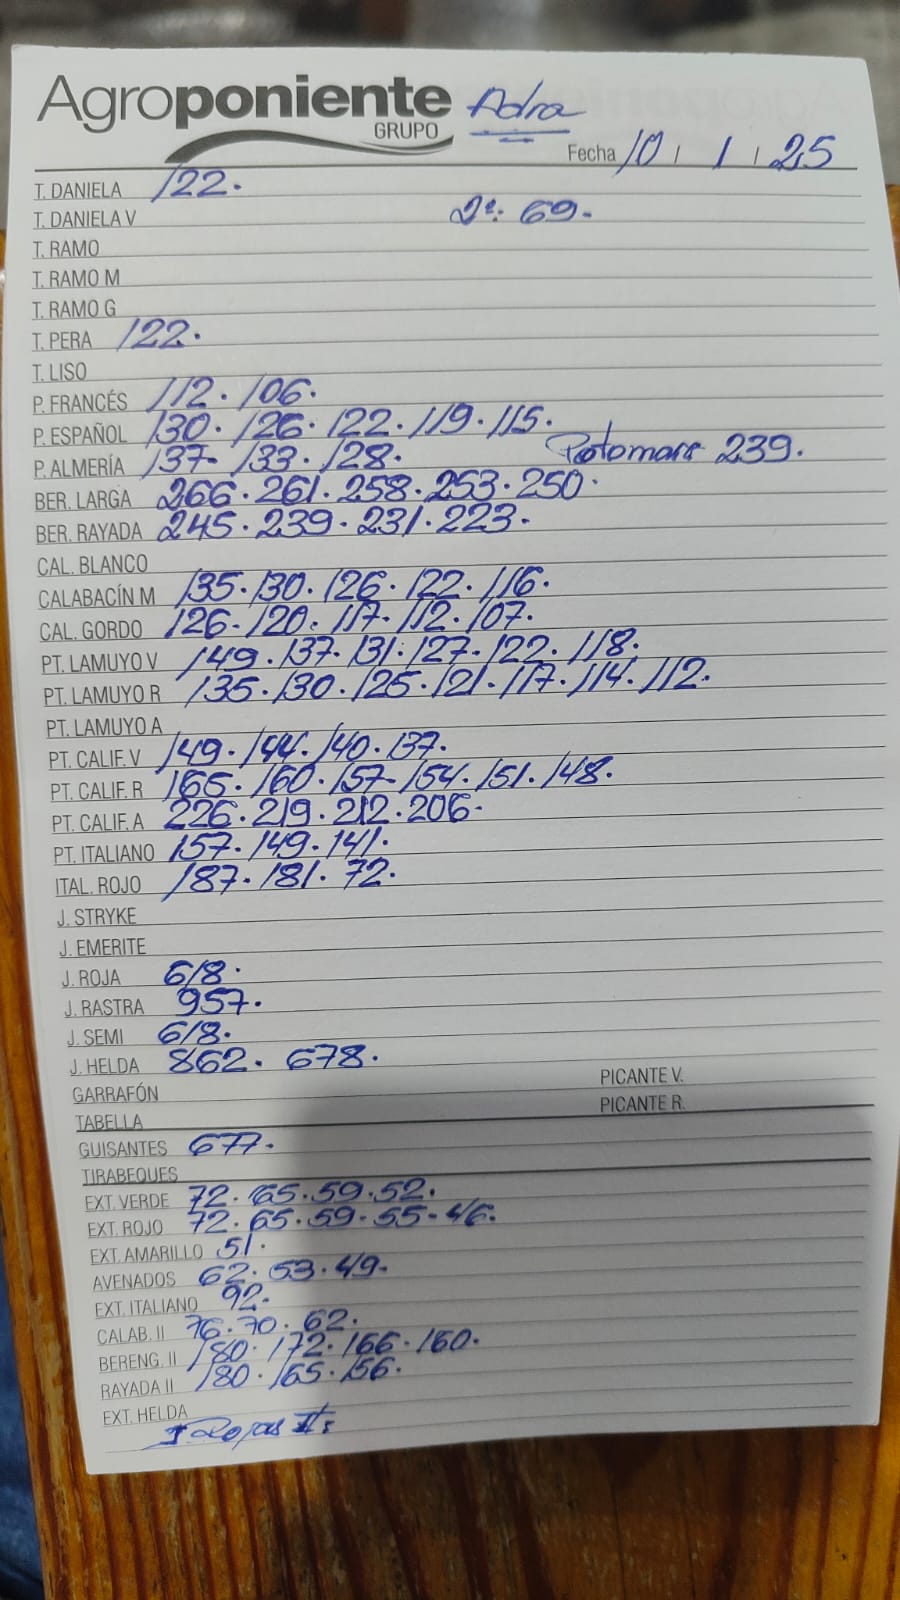 Agroponiente Adra
GRUPO
Fecha 10 / 1 / 25
T. DANIELA 122.
T. DANIELA V 2ª: 69.
T. RAMO
T. RAMO M
T. RAMO G
T. PERA 122.
T. LISO
P. FRANCÉS 112. 106.
P. ESPAÑOL 130. 126. 122. 119. 115.
P. ALMERÍA 137- 133. 128. Potomare 239.
BER. LARGA 266. 261. 258. 253. 250.
BER. RAYADA 245. 239. 231. 223.
CAL. BLANCO
CALABACÍN M 135. 130. 126. 122. 116.
CAL. GORDO 126- 120. 117. 112. 107.
PT. LAMUYO V 149. 137. 131. 127- 122. 118.
PT. LAMUYO R 135. 130. 125. 121. 117. 114. 112.
PT. LAMUYO A
PT. CALIF. V 149. 144. 140. 137.
PT. CALIF. R 165. 160. 157- 154. 151. 148.
PT. CALIF. A 226. 219. 212. 206.
PT. ITALIANO 157. 149. 141.
ITAL. ROJO 187. 181. 72.
J. STRYKE
J. EMERITE
J. ROJA 618.
J. RASTRA 957.
J. SEMI 618.
J. HELDA 862. 678.
GARRAFÓN PICANTE V.
TABELLA PICANTE R.
GUISANTES 677.
TIRABEQUES
EXT. VERDE 72. 65. 59. 52.
EXT. ROJO 72. 65. 59. 55- 46.
EXT. AMARILLO 51.
AVENADOS 62. 53. 49.
EXT. ITALIANO 92.
CALAB. II 76. 70. 62.
BERENG. II 180. 172. 166. 160.
RAYADA II 180. 165. 156.
EXT. HELDA
J. Rojas II: